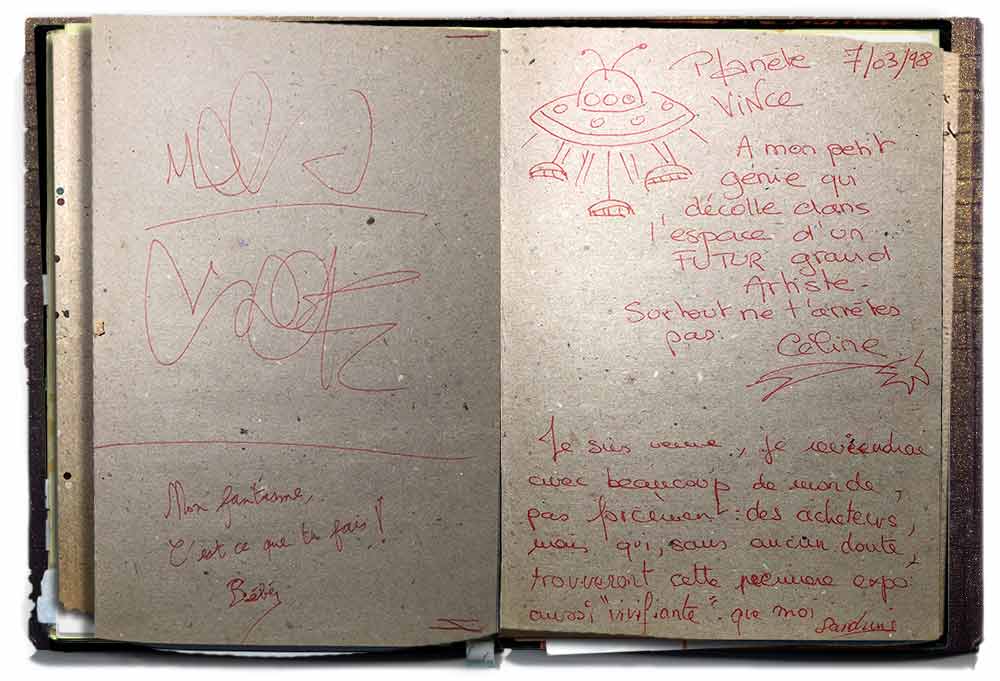 Mon fantasme,
C'est ce que tu fais !
Bébé
Planète 7/03/98
VINCE
A mon petit
génie qui
décolle dans
l'espace d'un
FUTUR grand
Artiste.
Surtout ne t'arrêtes
pas.
Céline
Je suis venue, je reviendrai
avec beaucoup de monde,
pas forcément : des acheteurs,
mais qui, sans aucun doute,
trouveront cette première expo
aussi "vivifiante" que moi